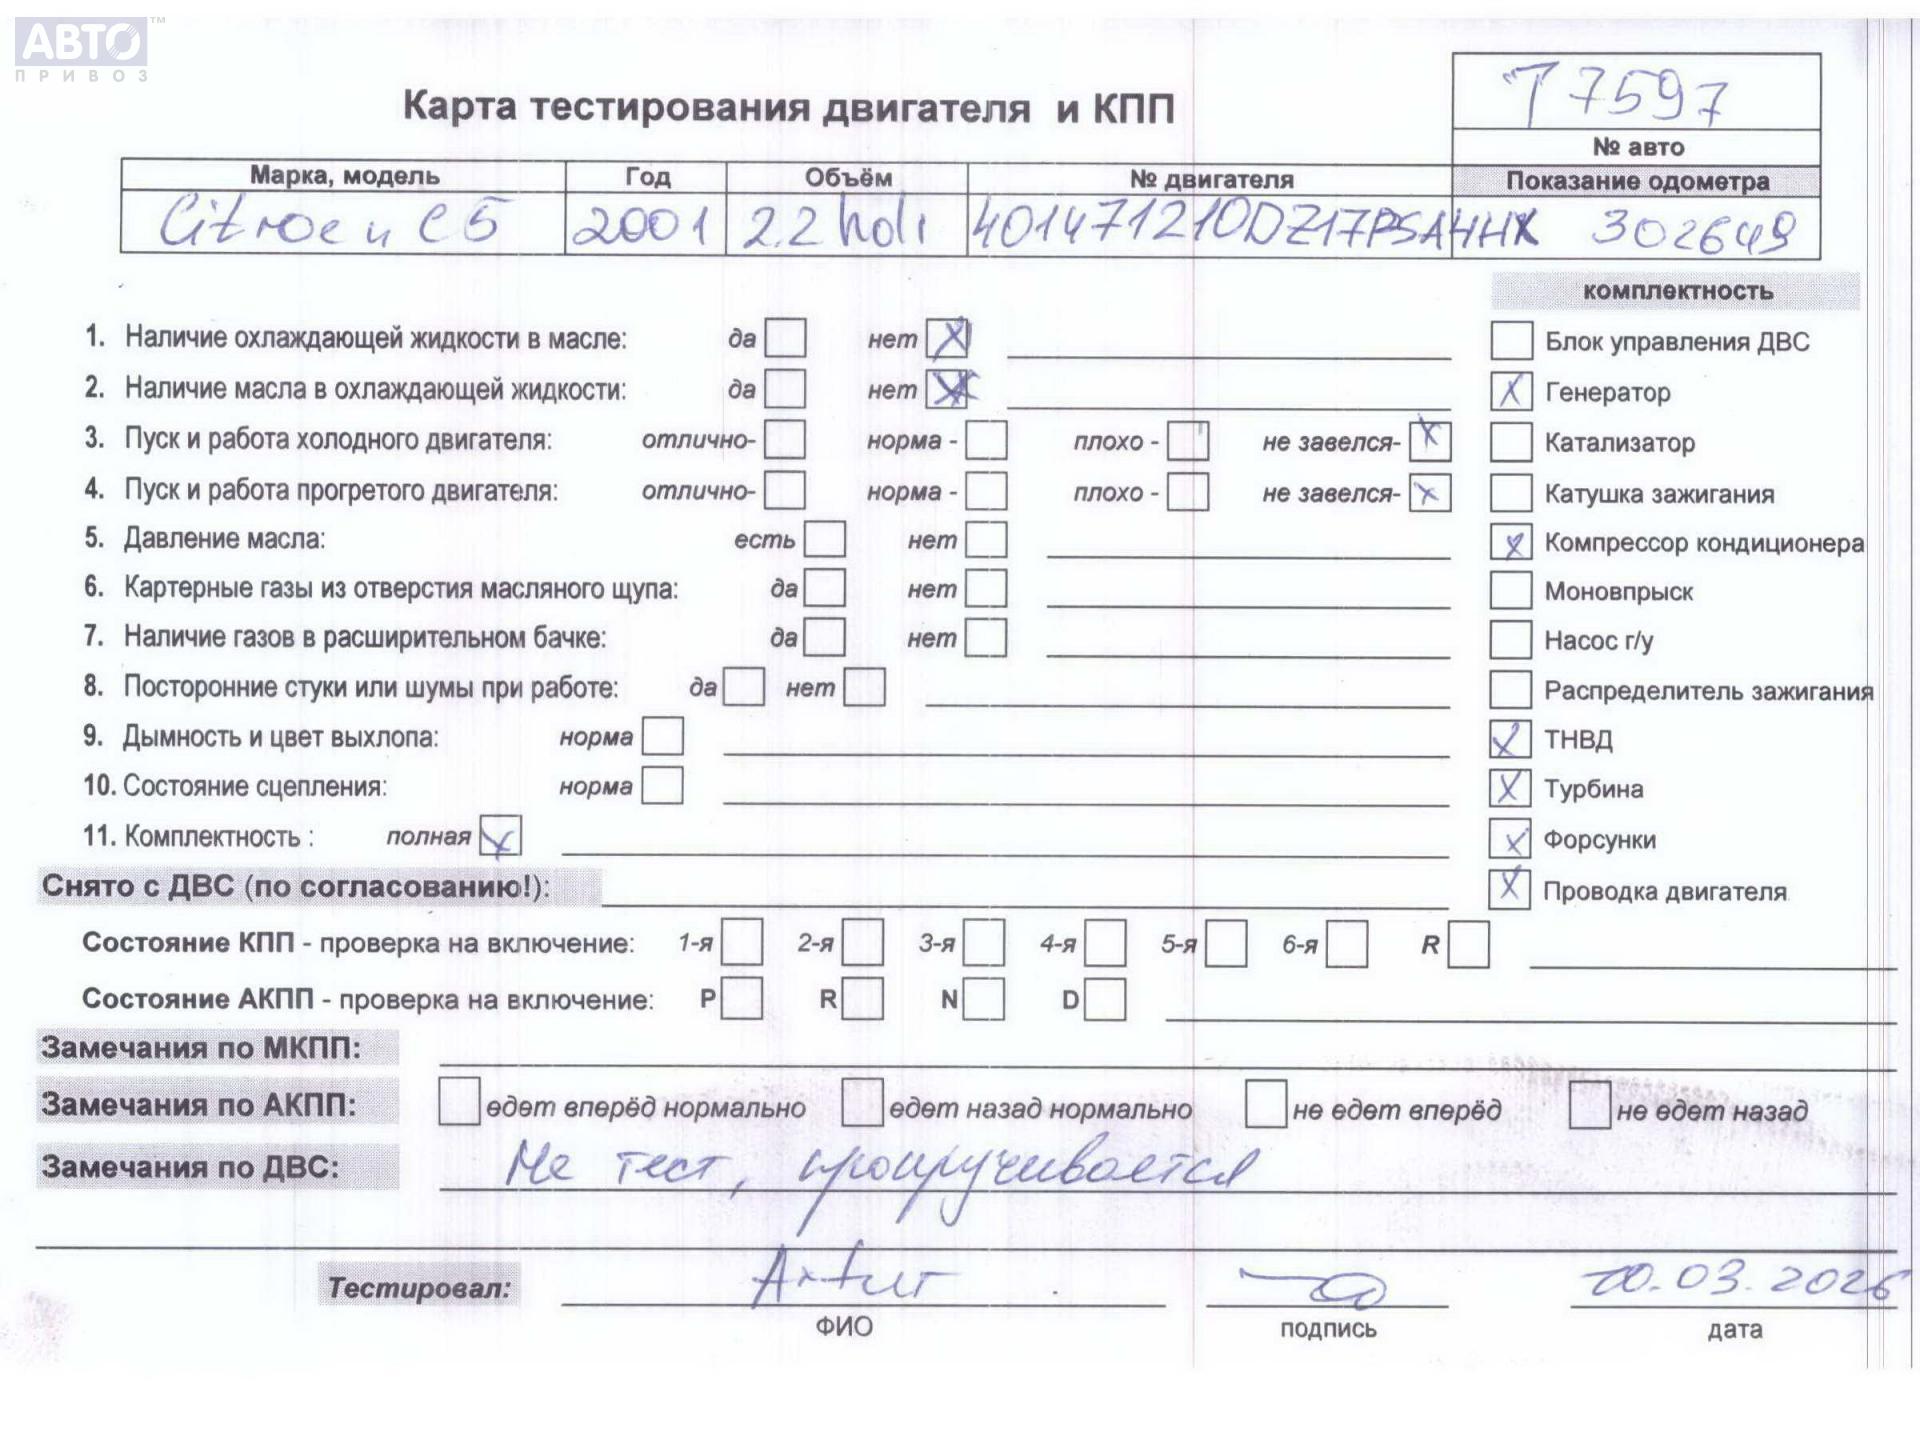 АВТО™
ПРИВОЗ
Т7597
Карта тестирования двигателя и КПП
№ авто
Марка, модель Год Объём № двигателя Показание одометра
Citroen C5 2001 2.2 hdi 401471210DZ17PSA4HX 302649
комплектность
1. Наличие охлаждающей жидкости в масле: да нет X Блок управления ДВС
2. Наличие масла в охлаждающей жидкости: да нет X X Генератор
3. Пуск и работа холодного двигателя: отлично- норма - плохо - не завелся- X Катализатор
4. Пуск и работа прогретого двигателя: отлично- норма - плохо - не завелся- X Катушка зажигания
5. Давление масла: есть нет X Компрессор кондиционера
6. Картерные газы из отверстия масляного щупа: да нет Моновпрыск
7. Наличие газов в расширительном бачке: да нет Насос г/у
8. Посторонние стуки или шумы при работе: да нет Распределитель зажигания
9. Дымность и цвет выхлопа: норма X ТНВД
10. Состояние сцепления: норма X Турбина
11. Комплектность : полная X X Форсунки
Снято с ДВС (по согласованию!): X Проводка двигателя
Состояние КПП - проверка на включение: 1-я 2-я 3-я 4-я 5-я 6-я R
Состояние АКПП - проверка на включение: P R N D
Замечания по МКПП:
Замечания по АКПП: едет вперёд нормально едет назад нормально не едет вперёд не едет назад
Замечания по ДВС: Не тест, прокручивается
Тестировал: 03.2026
ФИО подпись дата